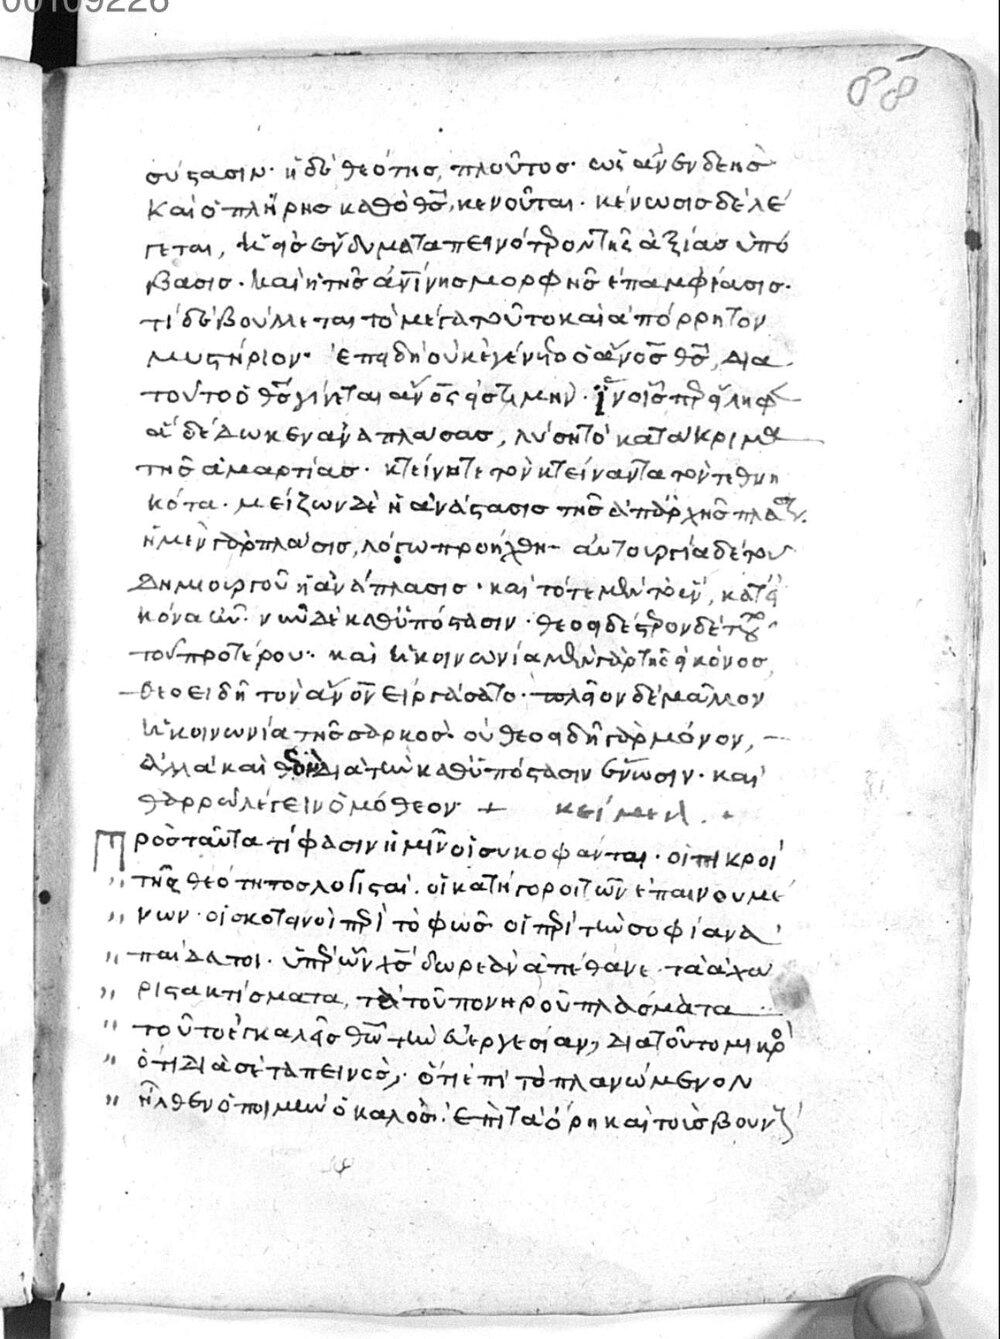 00109226
88
σύστασιν· ἡ δὲ θεότης, πλοῦτος· ὡς ἀνενδεής·
Καὶ ὁ πλήρης καθὸ θς, κενοῦται· κένωσις δὲ λέ
γεται, ἡ πρὸς ἔνδυμα ταπεινότερον τῆς ἀξίας ὑπό
βασις· καὶ ἡ τῆς ἀνίνης μορφῆς ἐπαμφίασις·
τί δὲ βούλεται τὸ μέγα τοῦτο καὶ ἀπόρρητον
μυστήριον· ἐπειδὴ οὐκ ἐγένετο ὁ ἄνος θς, δια
τοῦτο ὁ θς γίνεται ἄνος
αἷ δέδωκεν ἀναπλάσας, λύσῃ τὸ κατάκριμα
τῆς ἁμαρτίας· κτείνῃ τε τὸν κτείναντα τὸν τεθνη
κότα· μείζων δὲ ἡ ἀνάστασις τῆς ἀπαρχῆς πλάσεως.
ἡ μὲν γὰρ πλάσις, λόγω προήχθη· αὐτουργία δὲ τοῦ
Δημιουργοῦ ἡ ἀνάπλασις· καὶ τότε μὲν τὸ ἦν, κατ' εἰ
κόνα νῦν δὲ καθ' ὑπόστασιν· θεοειδέστερον δὲ
τοῦ προτέρου· καὶ ἡ κοινωνία μὲν γὰρ τῆς εἰκόνος,
θεοειδῆ τὸν ἄνον εἰργάσατο· πλεῖον δὲ μᾶλλον
ἡ κοινωνία τῆς σαρκός· οὐ θεοειδῆ γὰρ μόνον,
ἀλλὰ καὶ διὰ τὴν καθ' ὑπόστασιν ἕνωσιν· καὶ
θαρρῶ λέγειν ὁμόθεον· + κείμεν.
Πρὸς ταῦτα τί φασιν ἡμῖν οἱ συκοφάνται· οἱ πικροὶ
τῆς θεότητος λογισταί· οἱ κατήγοροι τῶν ἐπαινουμέ
νων· οἱ σκοτεινοὶ περὶ τὸ φῶς· οἱ περὶ τὴν σοφίαν ἀ
παίδευτοι· ὑπὲρ ὧν χς δωρεὰν ἀπέθανε· τὰ ἀχά
ριστα κτίσματα, τὰ τοῦ πονηροῦ πλάσματα
τοῦτο ἐγκαλεῖς θῶ τὴν εὐεργεσίαν, διατοῦτο μικρὸς
ὅτι διὰ σὲ ταπεινός, ὅτι ἐπὶ τὸ πλανώμενον
ἦλθεν ὁ ποιμὴν ὁ καλός· ἐπὶ τὰ ὄρη καὶ τοὺς βουνοὺς